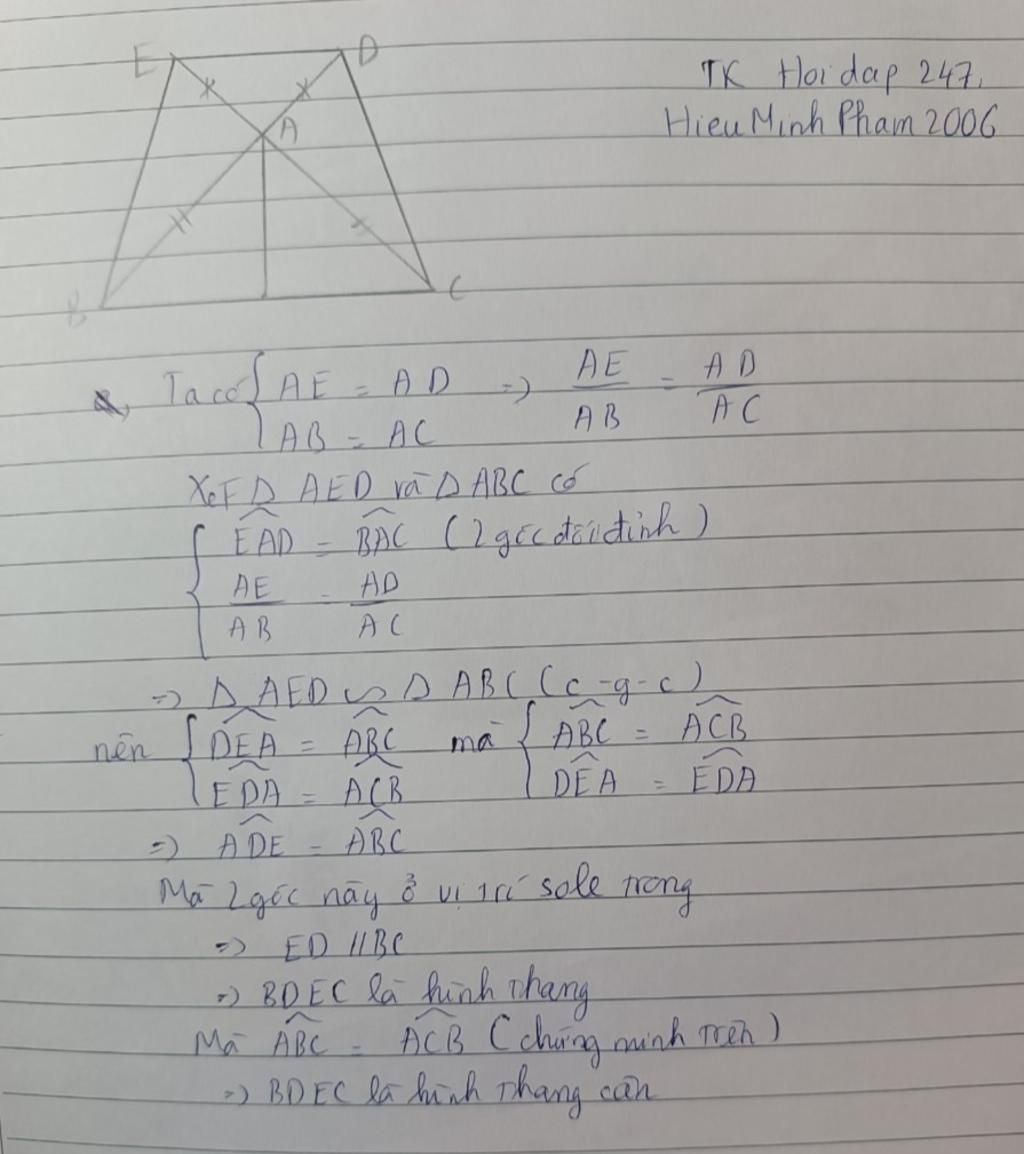 E D
A
B C
TK Hoidap 247.
HieuMinhPham2006
a, Ta có { AE = AD => AE/AB = AD/AC
AB = AC
Xét Δ AED và Δ ABC có
{ \widehat{EAD} = \widehat{BAC} (2 góc đối đỉnh)
AE/AB = AD/AC
=> Δ AED ∽ Δ ABC (c-g-c)
nên { \widehat{DEA} = \widehat{ABC} mà { \widehat{ABC} = \widehat{ACB}
\widehat{EDA} = \widehat{ACB} \widehat{DEA} = \widehat{EDA}
=> \widehat{ADE} = \widehat{ABC}
Mà 2 góc này ở vị trí sole trong
=> ED // BC
=> BDEC là hình thang
Mà \widehat{ABC} = \widehat{ACB} (chứng minh trên)
=> BDEC là hình thang cân